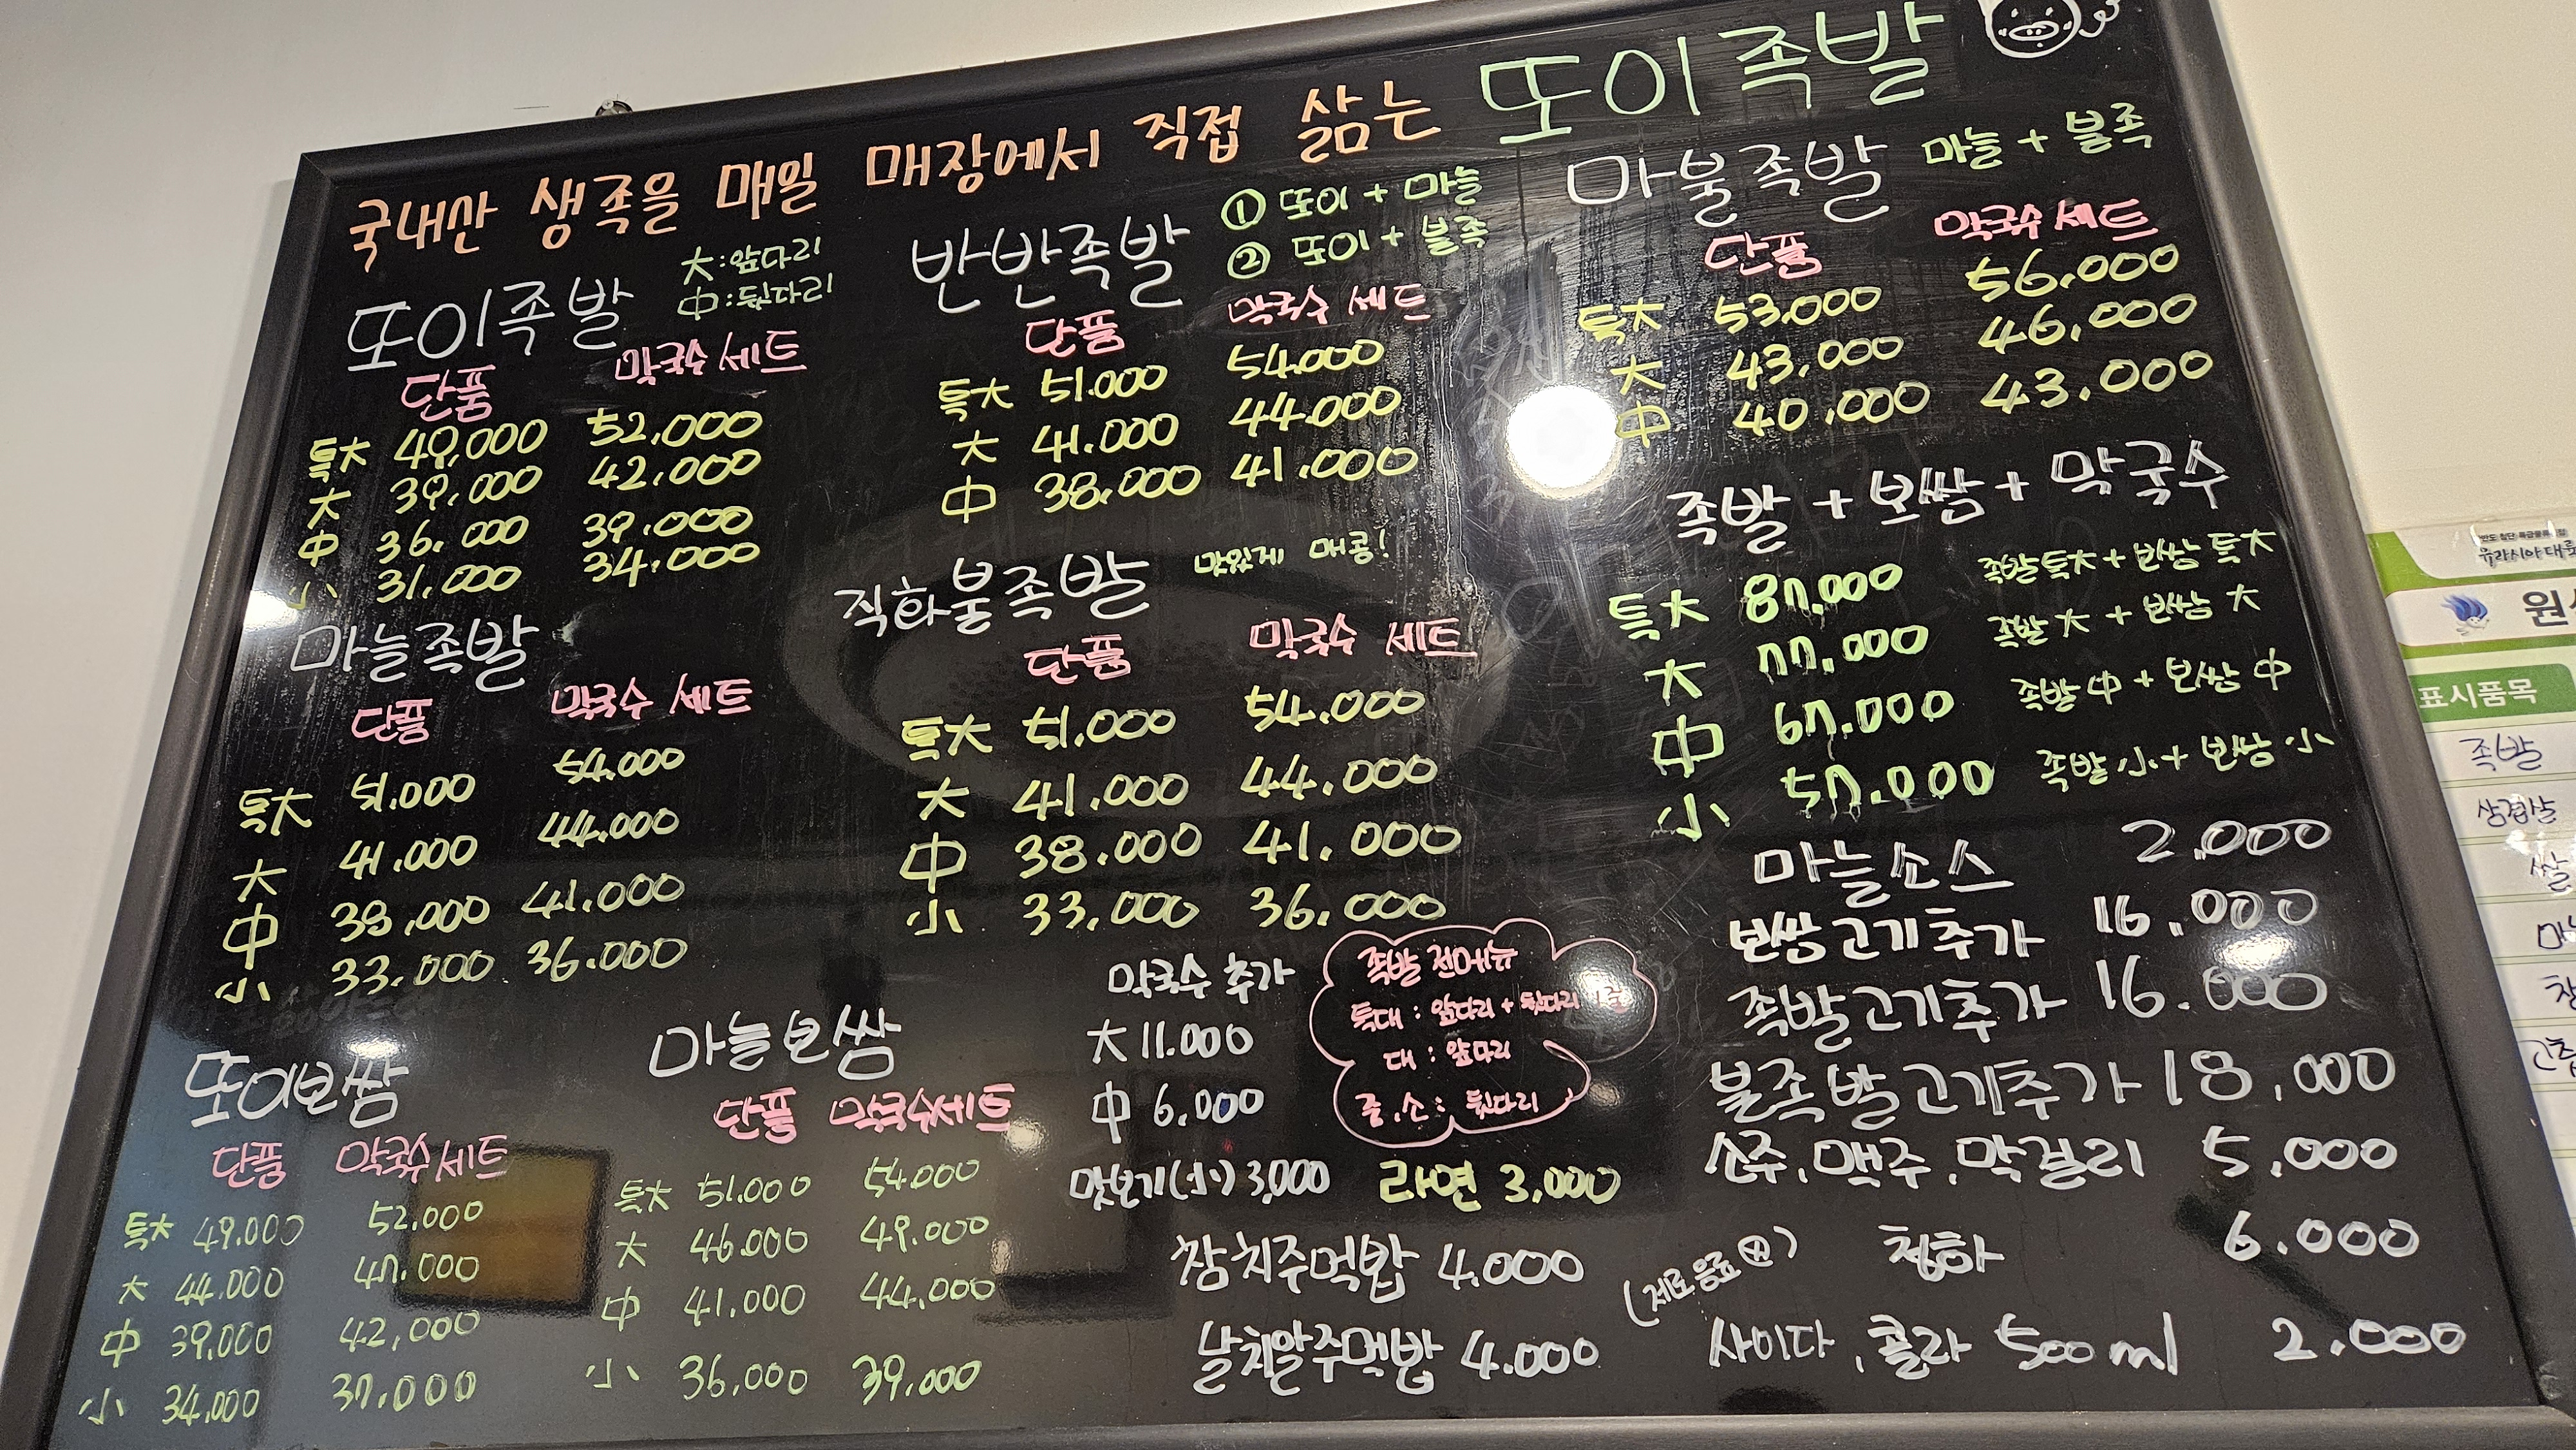 국내산 생족을 매일 매장에서 직접 삶는 또이족발
또이족발
大:앞다리
中:뒷다리
단품 막국수세트
특大 49,000 52,000
大 39,000 42,000
中 36,000 39,000
小 31,000 34,000
마늘족발
단품 막국수 세트
특大 51,000 54,000
大 41,000 44,000
中 38,000 41,000
小 33,000 36,000
또이보쌈
단품 막국수세트
특大 49,000 52,000
大 44,000 47,000
中 39,000 42,000
小 34,000 37,000
마늘보쌈
단품 막국수세트
특大 51,000 54,000
大 46,000 49,000
中 41,000 44,000
小 36,000 39,000
반반족발
① 또이 + 마늘
② 또이 + 불족
단품 막국수 세트
특大 51.000 54.000
大 41.000 44.000
中 38.000 41.000
직화불족발 맛있게 매콤!
단품 막국수 세트
특大 51,000 54.000
大 41.000 44.000
中 38.000 41.000
小 33,000 36.000
막국수 추가
大 11.000
中 6,000
맛보기(小) 3,000
족발 전메뉴
특대 : 앞다리 + 뒷다리
대 : 앞다리
중,소 : 뒷다리
라면 3,000
참치주먹밥 4.000
날치알주먹밥 4.000
마불족발 마늘 + 불족
단품 막국수 세트
특大 53.000 56,000
大 43,000 46,000
中 40,000 43.000
족발 + 보쌈 + 막국수
특大 87.000 족발특大 + 보쌈 특大
大 77.000 족발 大 + 보쌈 大
中 67.000 족발 中 + 보쌈 中
小 57.000 족발 小 + 보쌈 小
마늘소스 2,000
보쌈고기추가 16,000
족발고기추가 16.000
불족발고기추가 18,000
소주,맥주,막걸리 5,000
청하 6.000
(제로음료 有)
사이다, 콜라 500ml 2.000
유라시아대륙
표시품목
족발
삼겹살
쌀